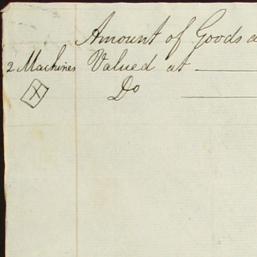 Amount of Goods a
2 Machines Valued at
X Do